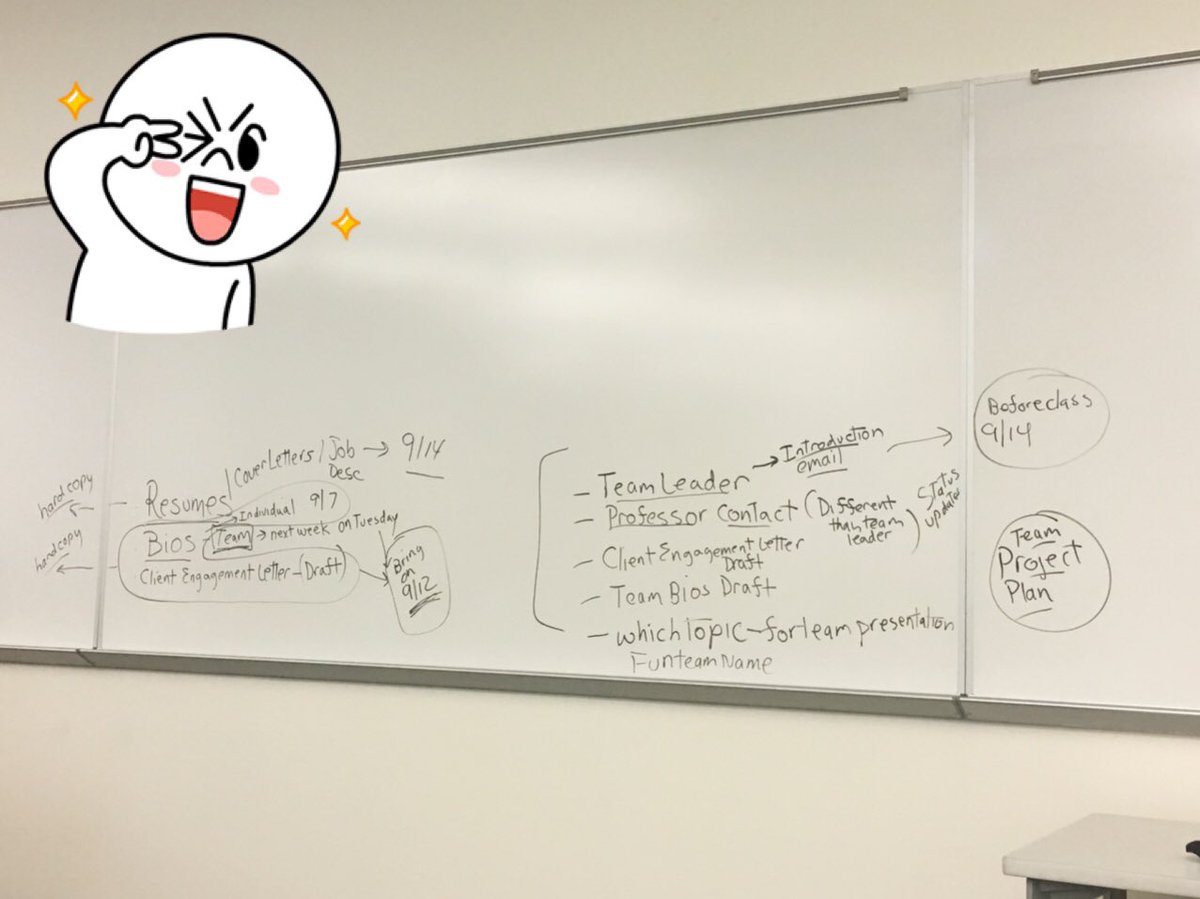 hardcopy
Resumes / Cover Letters / Job Desc → 9/14
hardcopy
Bios → Individual 9/7
→ Team → next week on Tuesday
Client Engagement Letter - (Draft)
Bring on 9/12
- Team Leader → Introduction email
- Professor Contact (Different than team leader) Status updates
- Client Engagement Letter Draft
- Team Bios Draft
- which Topic - for team presentation
Fun team Name
Before class
9/14
Team
Project
Plan